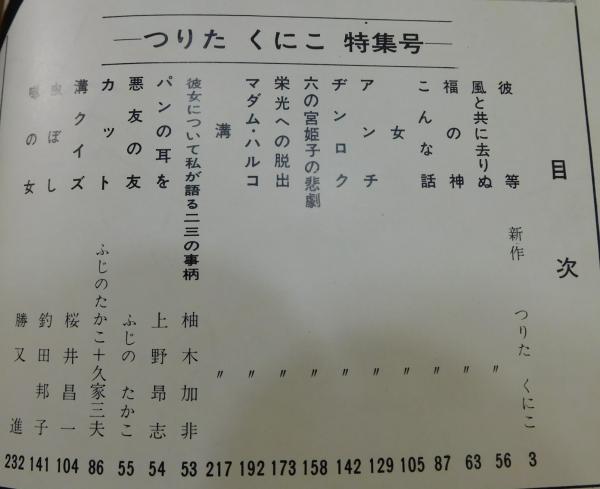 つりた くにこ 特集号
目次
彼等 新作 つりた くにこ 3
風と共に去りぬ 〃 56
福の神 〃 63
こんな話 〃 87
女 〃 105
アンチ 〃 129
ヂンロク 〃 142
六の宮姫子の悲劇 〃 158
栄光への脱出 〃 173
マダム・ハルコ 〃 192
溝 〃 217
彼女について私が語る二三の事柄 柚木加非 53
パンの耳を 上野昂志 54
悪友の友 ふじの たかこ 55
カット ふじのたかこ+久家三夫 86
溝クイズ 桜井昌一 104
虫ぼし 釣田邦子 141
の女 勝又進 232